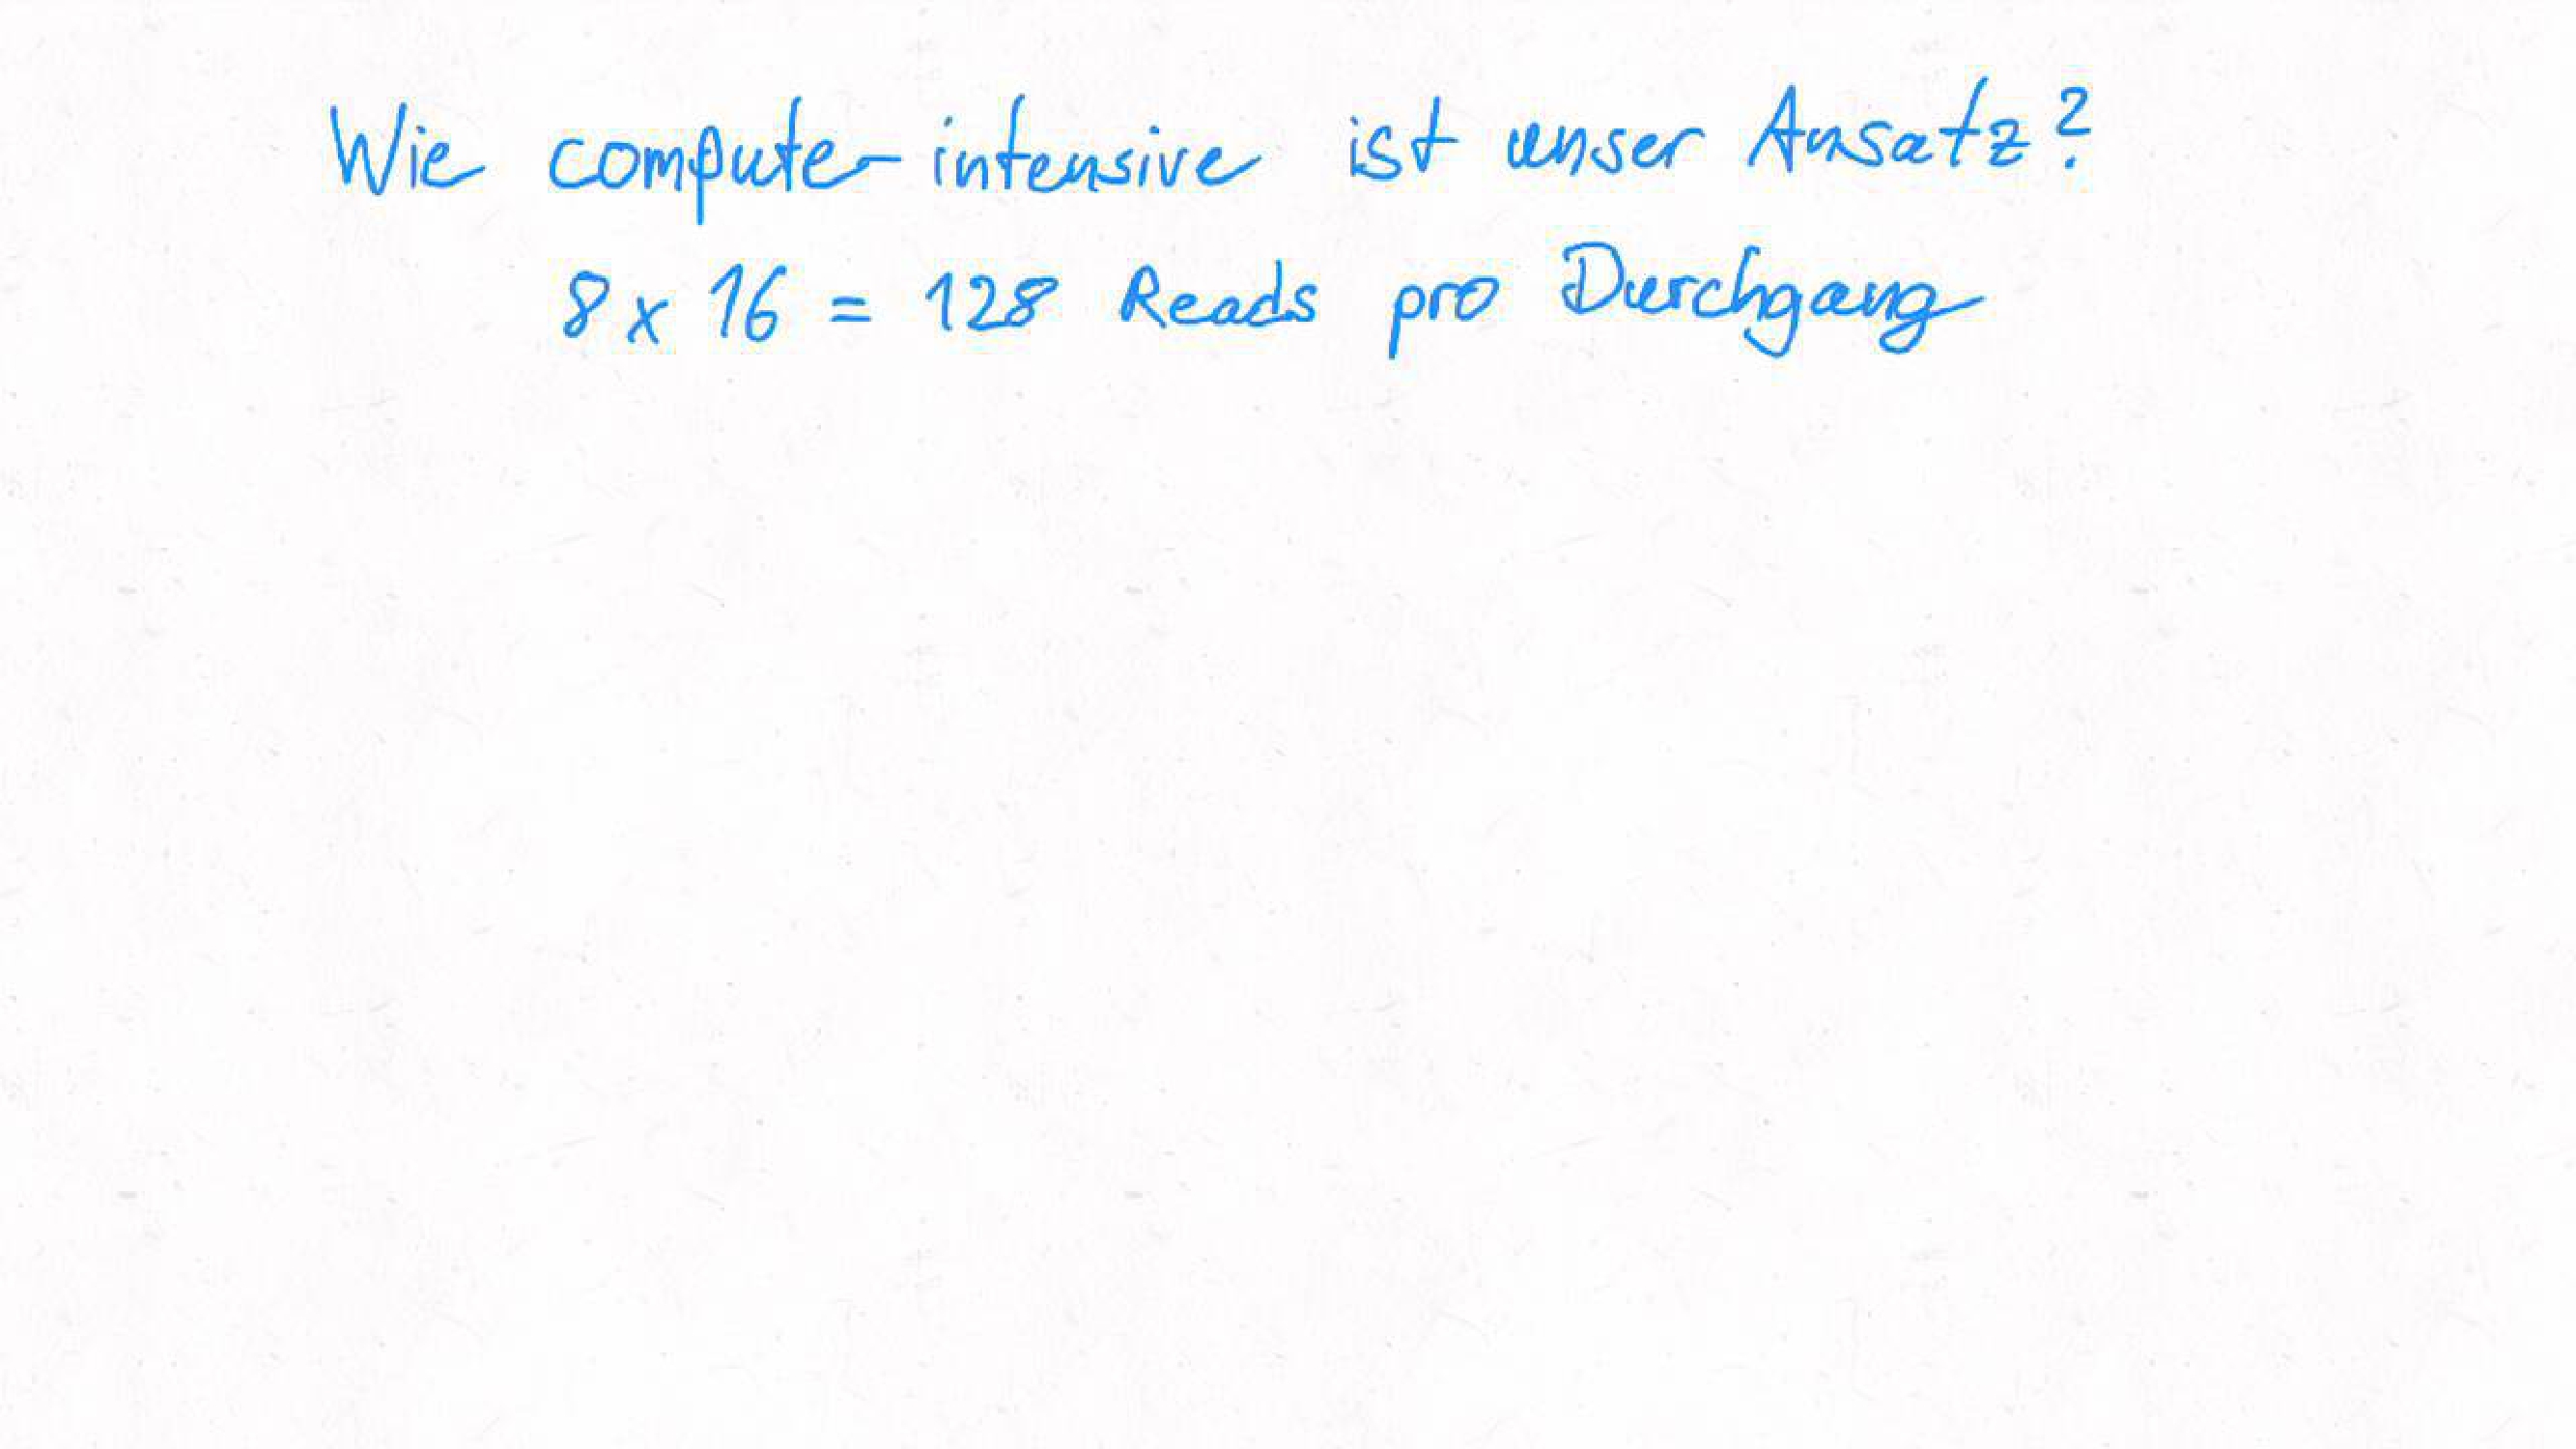 Wie computer-intensive ist unser Ansatz?
8 x 16 = 128 Reads pro Durchgang